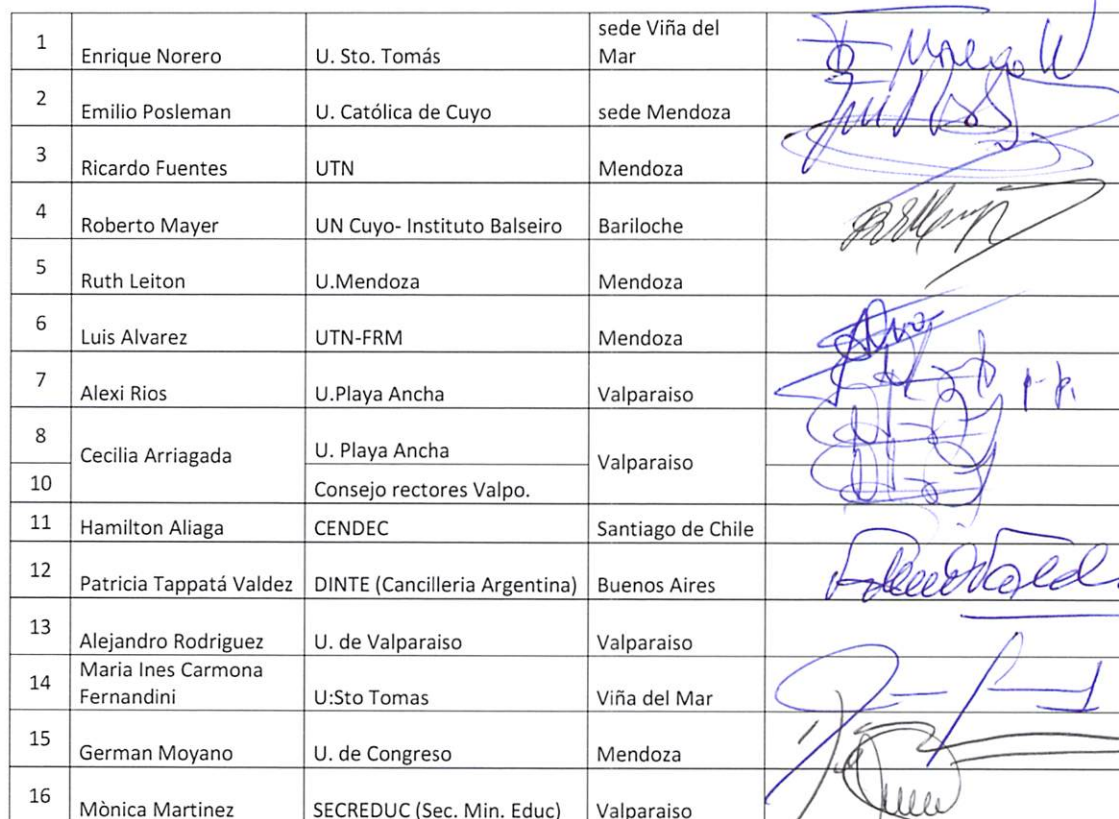 1 Enrique Norero U. Sto. Tomás sede Viña del Mar
2 Emilio Posleman U. Católica de Cuyo sede Mendoza
3 Ricardo Fuentes UTN Mendoza
4 Roberto Mayer UN Cuyo- Instituto Balseiro Bariloche
5 Ruth Leiton U.Mendoza Mendoza
6 Luis Alvarez UTN-FRM Mendoza
7 Alexi Rios U.Playa Ancha Valparaiso p.p.
8 Cecilia Arriagada U. Playa Ancha Valparaiso
10 Consejo rectores Valpo.
11 Hamilton Aliaga CENDEC Santiago de Chile
12 Patricia Tappatá Valdez DINTE (Cancilleria Argentina) Buenos Aires
13 Alejandro Rodriguez U. de Valparaiso Valparaiso
14 Maria Ines Carmona Fernandini U:Sto Tomas Viña del Mar
15 German Moyano U. de Congreso Mendoza
16 Mònica Martinez SECREDUC (Sec. Min. Educ) Valparaiso